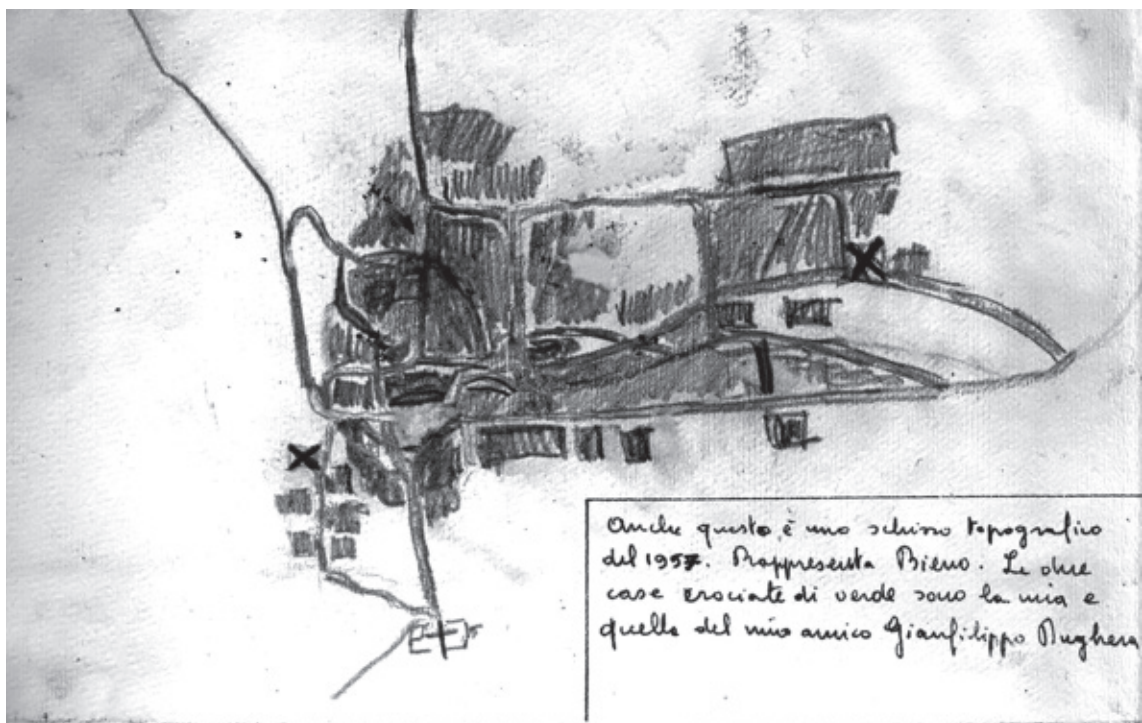 Anche questo è uno schizzo topografico
del 1957. Rappresenta Bieno. Le due
case crociate di verde sono la mia e
quella del mio amico Gianfilippo